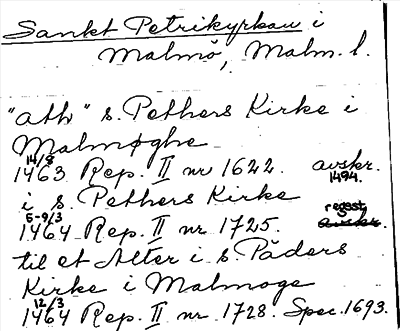 Sankt Petrikyrkan i
Malmö, Malm. l.
"ath" s. Pethers Kirke i
Malmøghe
14/8
1463 Rep. II nr 1622. avskr.
1494.
i s. Pethers Kirke
5-9/3
1464 Rep. II nr 1725. regest
avskr.
til et Alter i s. Päders
Kirke i Malmoge
12/3
1464 Rep. II nr 1728. Spec. 1693.